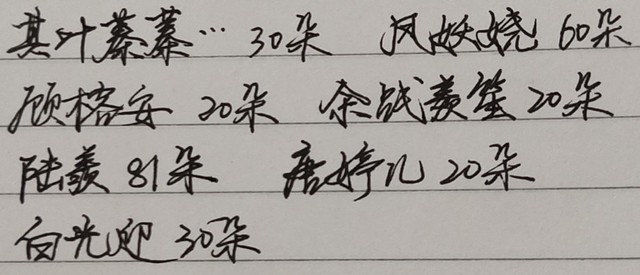 其叶蓁蓁… 30朵 凤妖娆 60朵
顾榕安 20朵 余战羡笙 20朵
陆羡 81朵 唐婷儿 20朵
白光迎 30朵